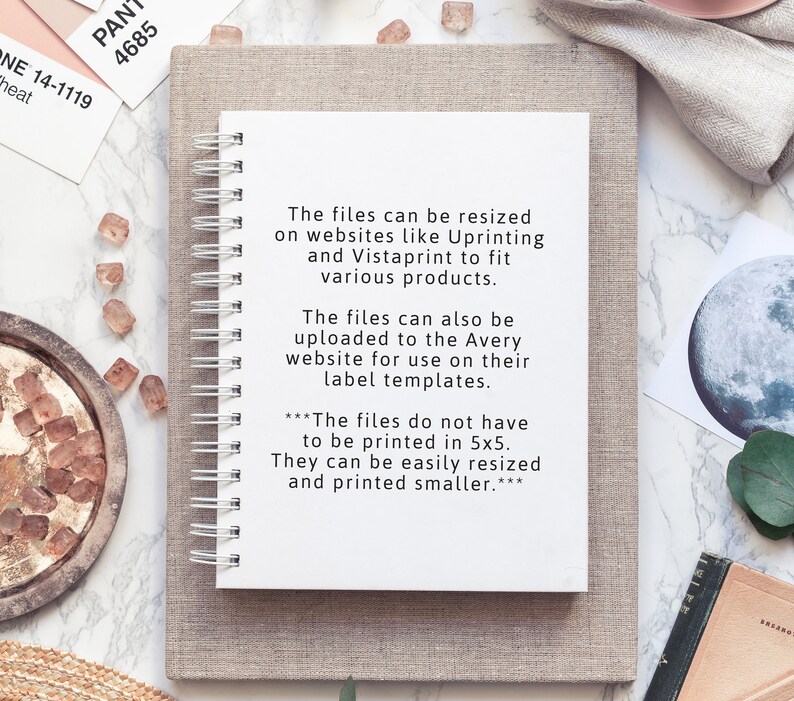 PANT
4685
ONE 14-1119
heat
The files can be resized
on websites like Uprinting
and Vistaprint to fit
various products.
The files can also be
uploaded to the Avery
website for use on their
label templates.
***The files do not have
to be printed in 5x5.
They can be easily resized
and printed smaller.***